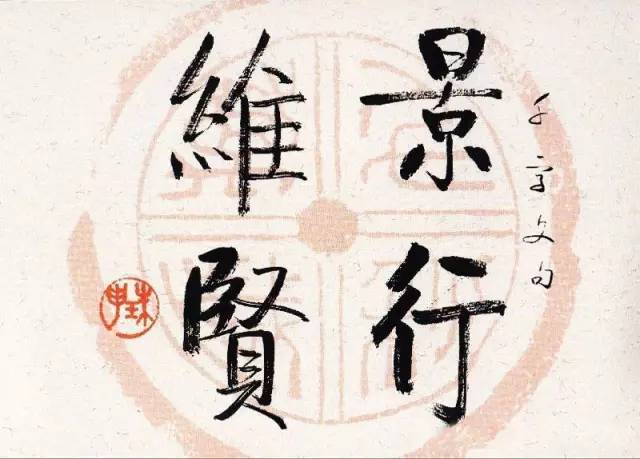 千字文句
景行
維賢